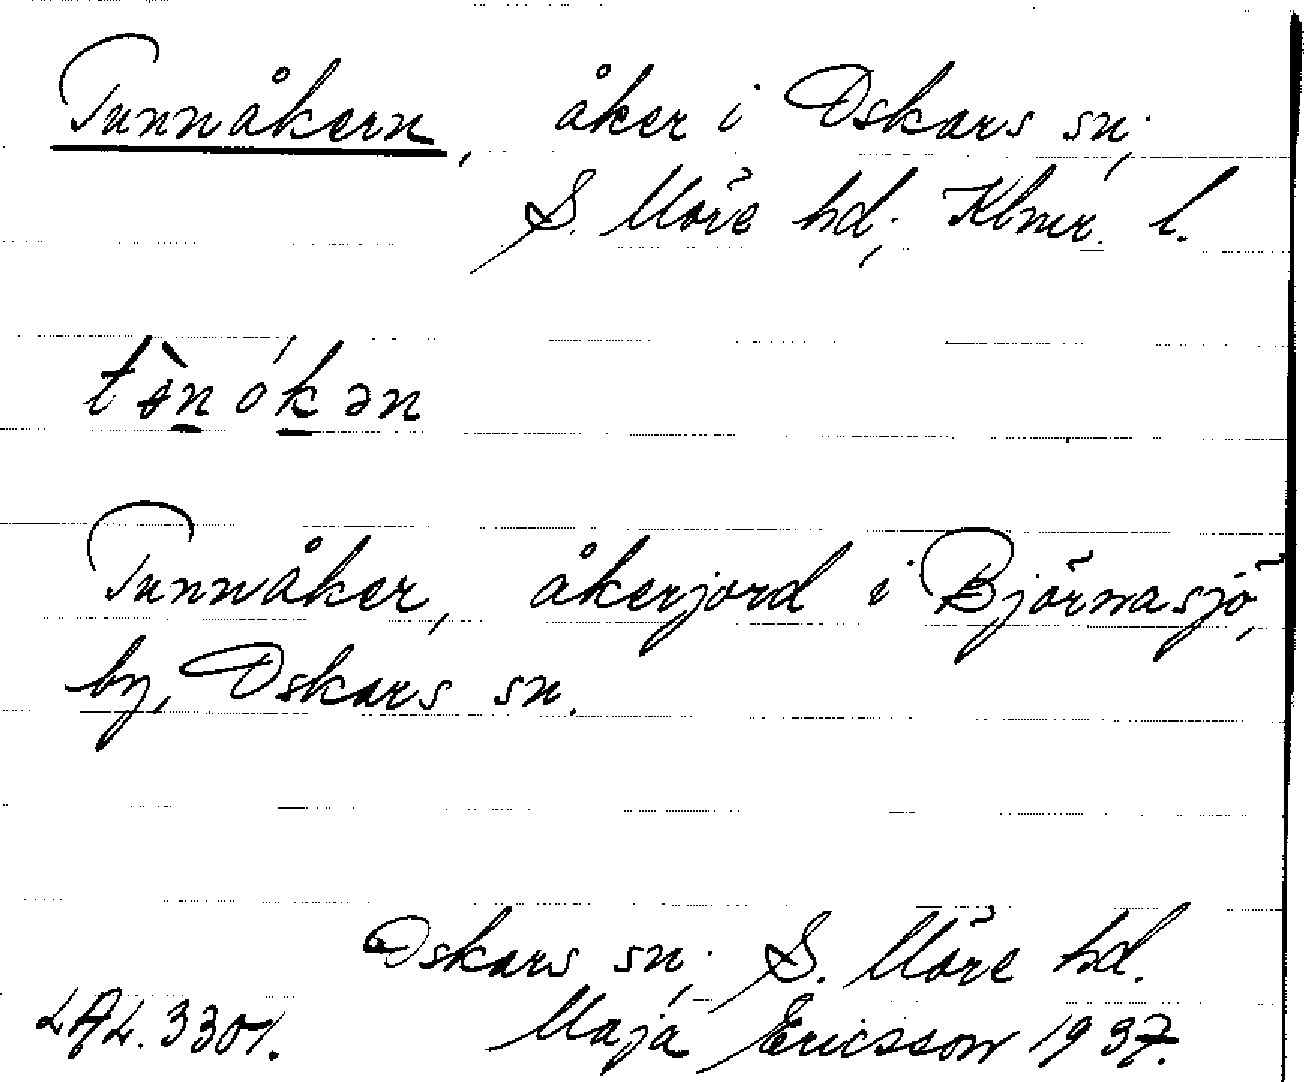 Tunnåkern, åker i Oskars sn;
S. Möre hd; Klmr. l.
Tunnåker, åkerjord i Björnasjö,
by, Oskars sn.
Oskars sn; S. Möre hd.
LAL. 3301. Maja Ericsson 1937.